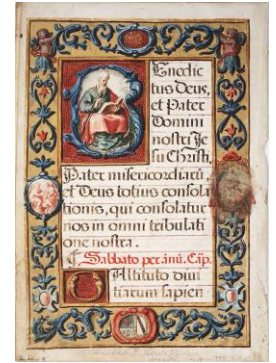 Benedic
tus Deus,
et Pater
Domini
nostri Je
su Christi,
Pater misericordiarũ,
et Deus totius consola
tionis, qui consolatur
nos in omni tribulati
one nostra.
Sabbato per. ãnũ. Cap.
O Altitudo divi
tiarum sapien